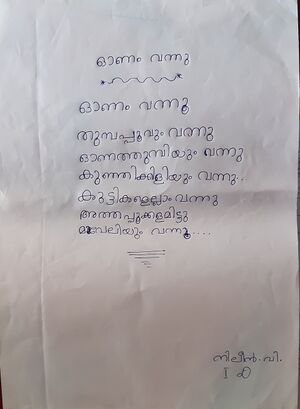 ഓണം വന്നു
ഓണം വന്നൂ
തുമ്പപ്പൂവും വന്നു
ഓണത്തുമ്പിയും വന്നു
കുഞ്ഞിക്കിളിയും വന്നു..
കുട്ടികളെല്ലാം വന്നു
അത്തപ്പൂക്കളമിട്ടു
മാബലിയും വന്നൂ....
നിലീൻ.വി.